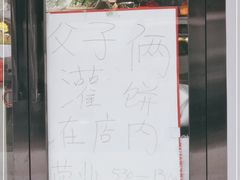 父子俩
灌饼
在店内
营业